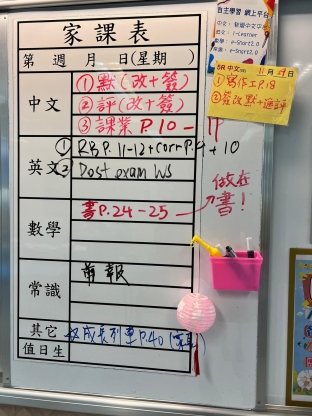 家課表
第 週 月 日(星期 )
中文
①默(改+簽)
②評(改+簽)
③課業 P.10 - 11
英文
① RB P. 11-12 + corr P.9 + 10
② Post exam WS
數學
書P.24-25
做在
書!
常識
剪報
其它
成長列車P.40
值日生
自主學習 網上平台
5R 中文 11月19日
①寫作工P.18
②簽改默+通評